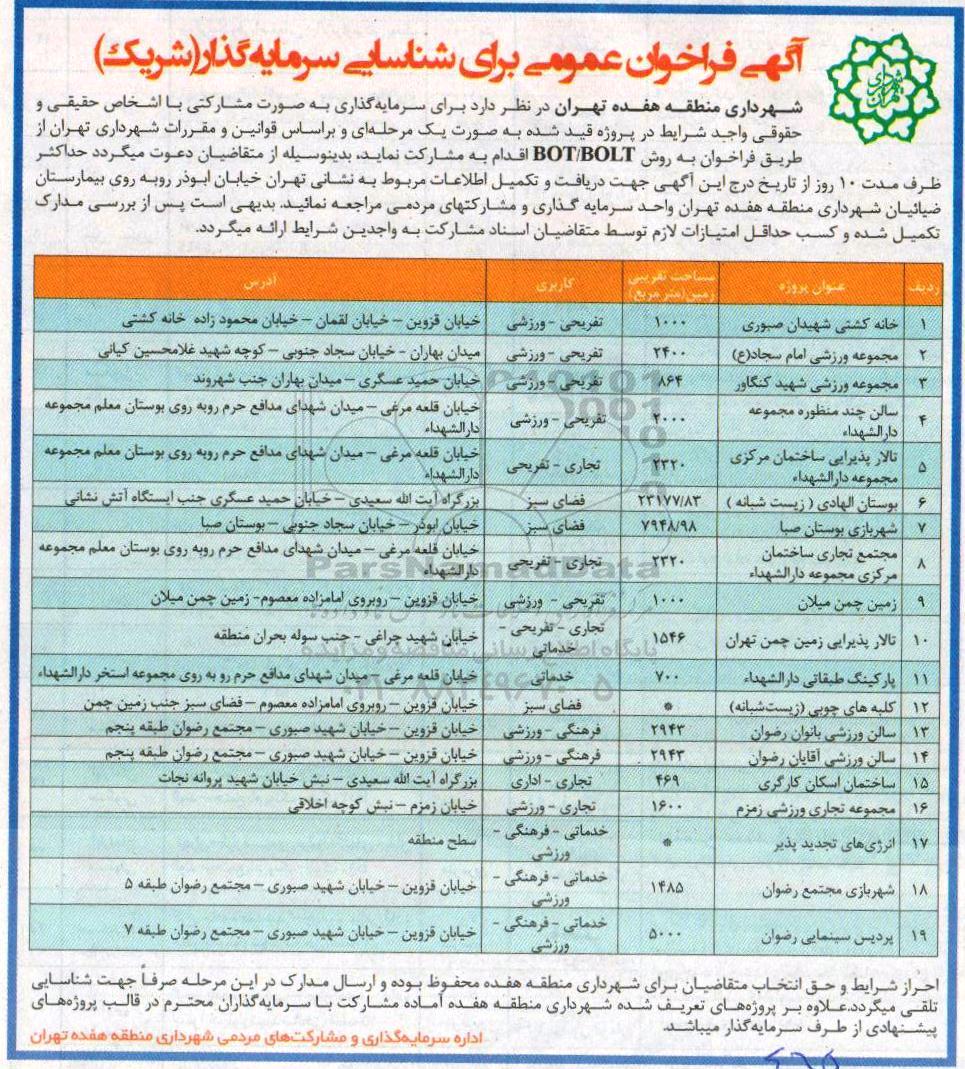 آگهی فراخوان عمومی برای شناسایی سرمایه‌گذار(شریک)
شهرداری تهران
شهرداری منطقه هفده تهران در نظر دارد برای سرمایه‌گذاری به صورت مشارکتی با اشخاص حقیقی و
حقوقی واجد شرایط در پروژه قید شده به صورت یک مرحله‌ای و براساس قوانین و مقررات شهرداری تهران از
طریق فراخوان به روش BOT/BOLT اقدام به مشارکت نماید، بدینوسیله از متقاضیان دعوت میگردد حداکثر
ظرف مدت ۱۰ روز از تاریخ درج این آگهی جهت دریافت و تکمیل اطلاعات مربوط به نشانی تهران خیابان ابوذر روبه روی بیمارستان
ضیائیان شهرداری منطقه هفده تهران واحد سرمایه گذاری و مشارکتهای مردمی مراجعه نمائید. بدیهی است پس از بررسی مدارک
تکمیل شده و کسب حداقل امتیازات لازم توسط متقاضیان اسناد مشارکت به واجدین شرایط ارائه میگردد.
ردیف عنوان پروژه مساحت تقریبی زمین(متر مربع) کاربری آدرس
۱ خانه کشتی شهیدان صبوری ۱۰۰۰ تفریحی - ورزشی خیابان قزوین – خیابان لقمان – خیابان محمود زاده خانه کشتی
۲ مجموعه ورزشی امام سجاد(ع) ۲۴۰۰ تفریحی - ورزشی میدان بهاران - خیابان سجاد جنوبی – کوچه شهید غلامحسین کیانی
۳ مجموعه ورزشی شهید کنگاور ۸۶۴ تفریحی - ورزشی خیابان حمید عسگری – میدان بهاران جنب شهروند
۴ سالن چند منظوره مجموعه دارالشهداء ۲۰۰۰ تفریحی - ورزشی خیابان قلعه مرغی – میدان شهدای مدافع حرم روبه روی بوستان معلم مجموعه دارالشهداء
۵ تالار پذیرایی ساختمان مرکزی مجموعه دارالشهداء ۲۳۲۰ تجاری - تفریحی خیابان قلعه مرغی – میدان شهدای مدافع حرم روبه روی بوستان معلم مجموعه دارالشهداء
۶ بوستان الهادی ( زیست شبانه ) ۲۳۱۷۷/۸۳ فضای سبز بزرگراه آیت الله سعیدی – خیابان حمید عسگری جنب ایستگاه آتش نشانی
۷ شهربازی بوستان صبا ۷۹۴۸/۹۸ فضای سبز خیابان ابوذر – خیابان سجاد جنوبی – بوستان صبا
۸ مجتمع تجاری ساختمان مرکزی مجموعه دارالشهداء ۲۳۲۰ تجاری - تفریحی خیابان قلعه مرغی – میدان شهدای مدافع حرم روبه روی بوستان معلم مجموعه دارالشهداء
۹ زمین چمن میلان ۱۰۰۰ تفریحی - ورزشی خیابان قزوین – روبروی امامزاده معصوم- زمین چمن میلان
۱۰ تالار پذیرایی زمین چمن تهران ۱۵۴۶ تجاری - تفریحی - خدماتی خیابان شهید چراغی - جنب سوله بحران منطقه
۱۱ پارکینگ طبقاتی دارالشهداء ۷۰۰ خدماتی خیابان قلعه مرغی – میدان شهدای مدافع حرم رو به روی مجموعه استخر دارالشهداء
۱۲ کلبه های چوبی (زیست‌شبانه) * فضای سبز خیابان قزوین – روبروی امامزاده معصوم – فضای سبز جنب زمین چمن
۱۳ سالن ورزشی بانوان رضوان ۲۹۴۳ فرهنگی - ورزشی خیابان قزوین – خیابان شهید صبوری – مجتمع رضوان طبقه پنجم
۱۴ سالن ورزشی آقایان رضوان ۲۹۴۳ فرهنگی - ورزشی خیابان قزوین – خیابان شهید صبوری – مجتمع رضوان طبقه پنجم
۱۵ ساختمان اسکان کارگری ۴۶۹ تجاری - اداری بزرگراه آیت الله سعیدی – نبش خیابان شهید پروانه نجات
۱۶ مجموعه تجاری ورزشی زمزم ۱۶۰۰ تجاری - ورزشی خیابان زمزم – نبش کوچه اخلاقی
۱۷ انرژی‌های تجدید پذیر * خدماتی - فرهنگی - ورزشی سطح منطقه
۱۸ شهربازی مجتمع رضوان ۱۴۸۵ خدماتی - فرهنگی - ورزشی خیابان قزوین – خیابان شهید صبوری – مجتمع رضوان طبقه ۵
۱۹ پردیس سینمایی رضوان ۵۰۰۰ خدماتی - فرهنگی - ورزشی خیابان قزوین – خیابان شهید صبوری – مجتمع رضوان طبقه ۷
ParsNamadData
پایگاه اطلاع رسانی مناقصه و مزایده
احراز شرایط و حق انتخاب متقاضیان برای شهرداری منطقه هفده محفوظ بوده و ارسال مدارک در این مرحله صرفاً جهت شناسایی
تلقی میگردد.علاوه بر پروژه‌های تعریف شده شهرداری منطقه هفده آماده مشارکت با سرمایه‌گذاران محترم در قالب پروژه‌های
پیشنهادی از طرف سرمایه‌گذار میباشد.
اداره سرمایه‌گذاری و مشارکت‌های مردمی شهرداری منطقه هفده تهران